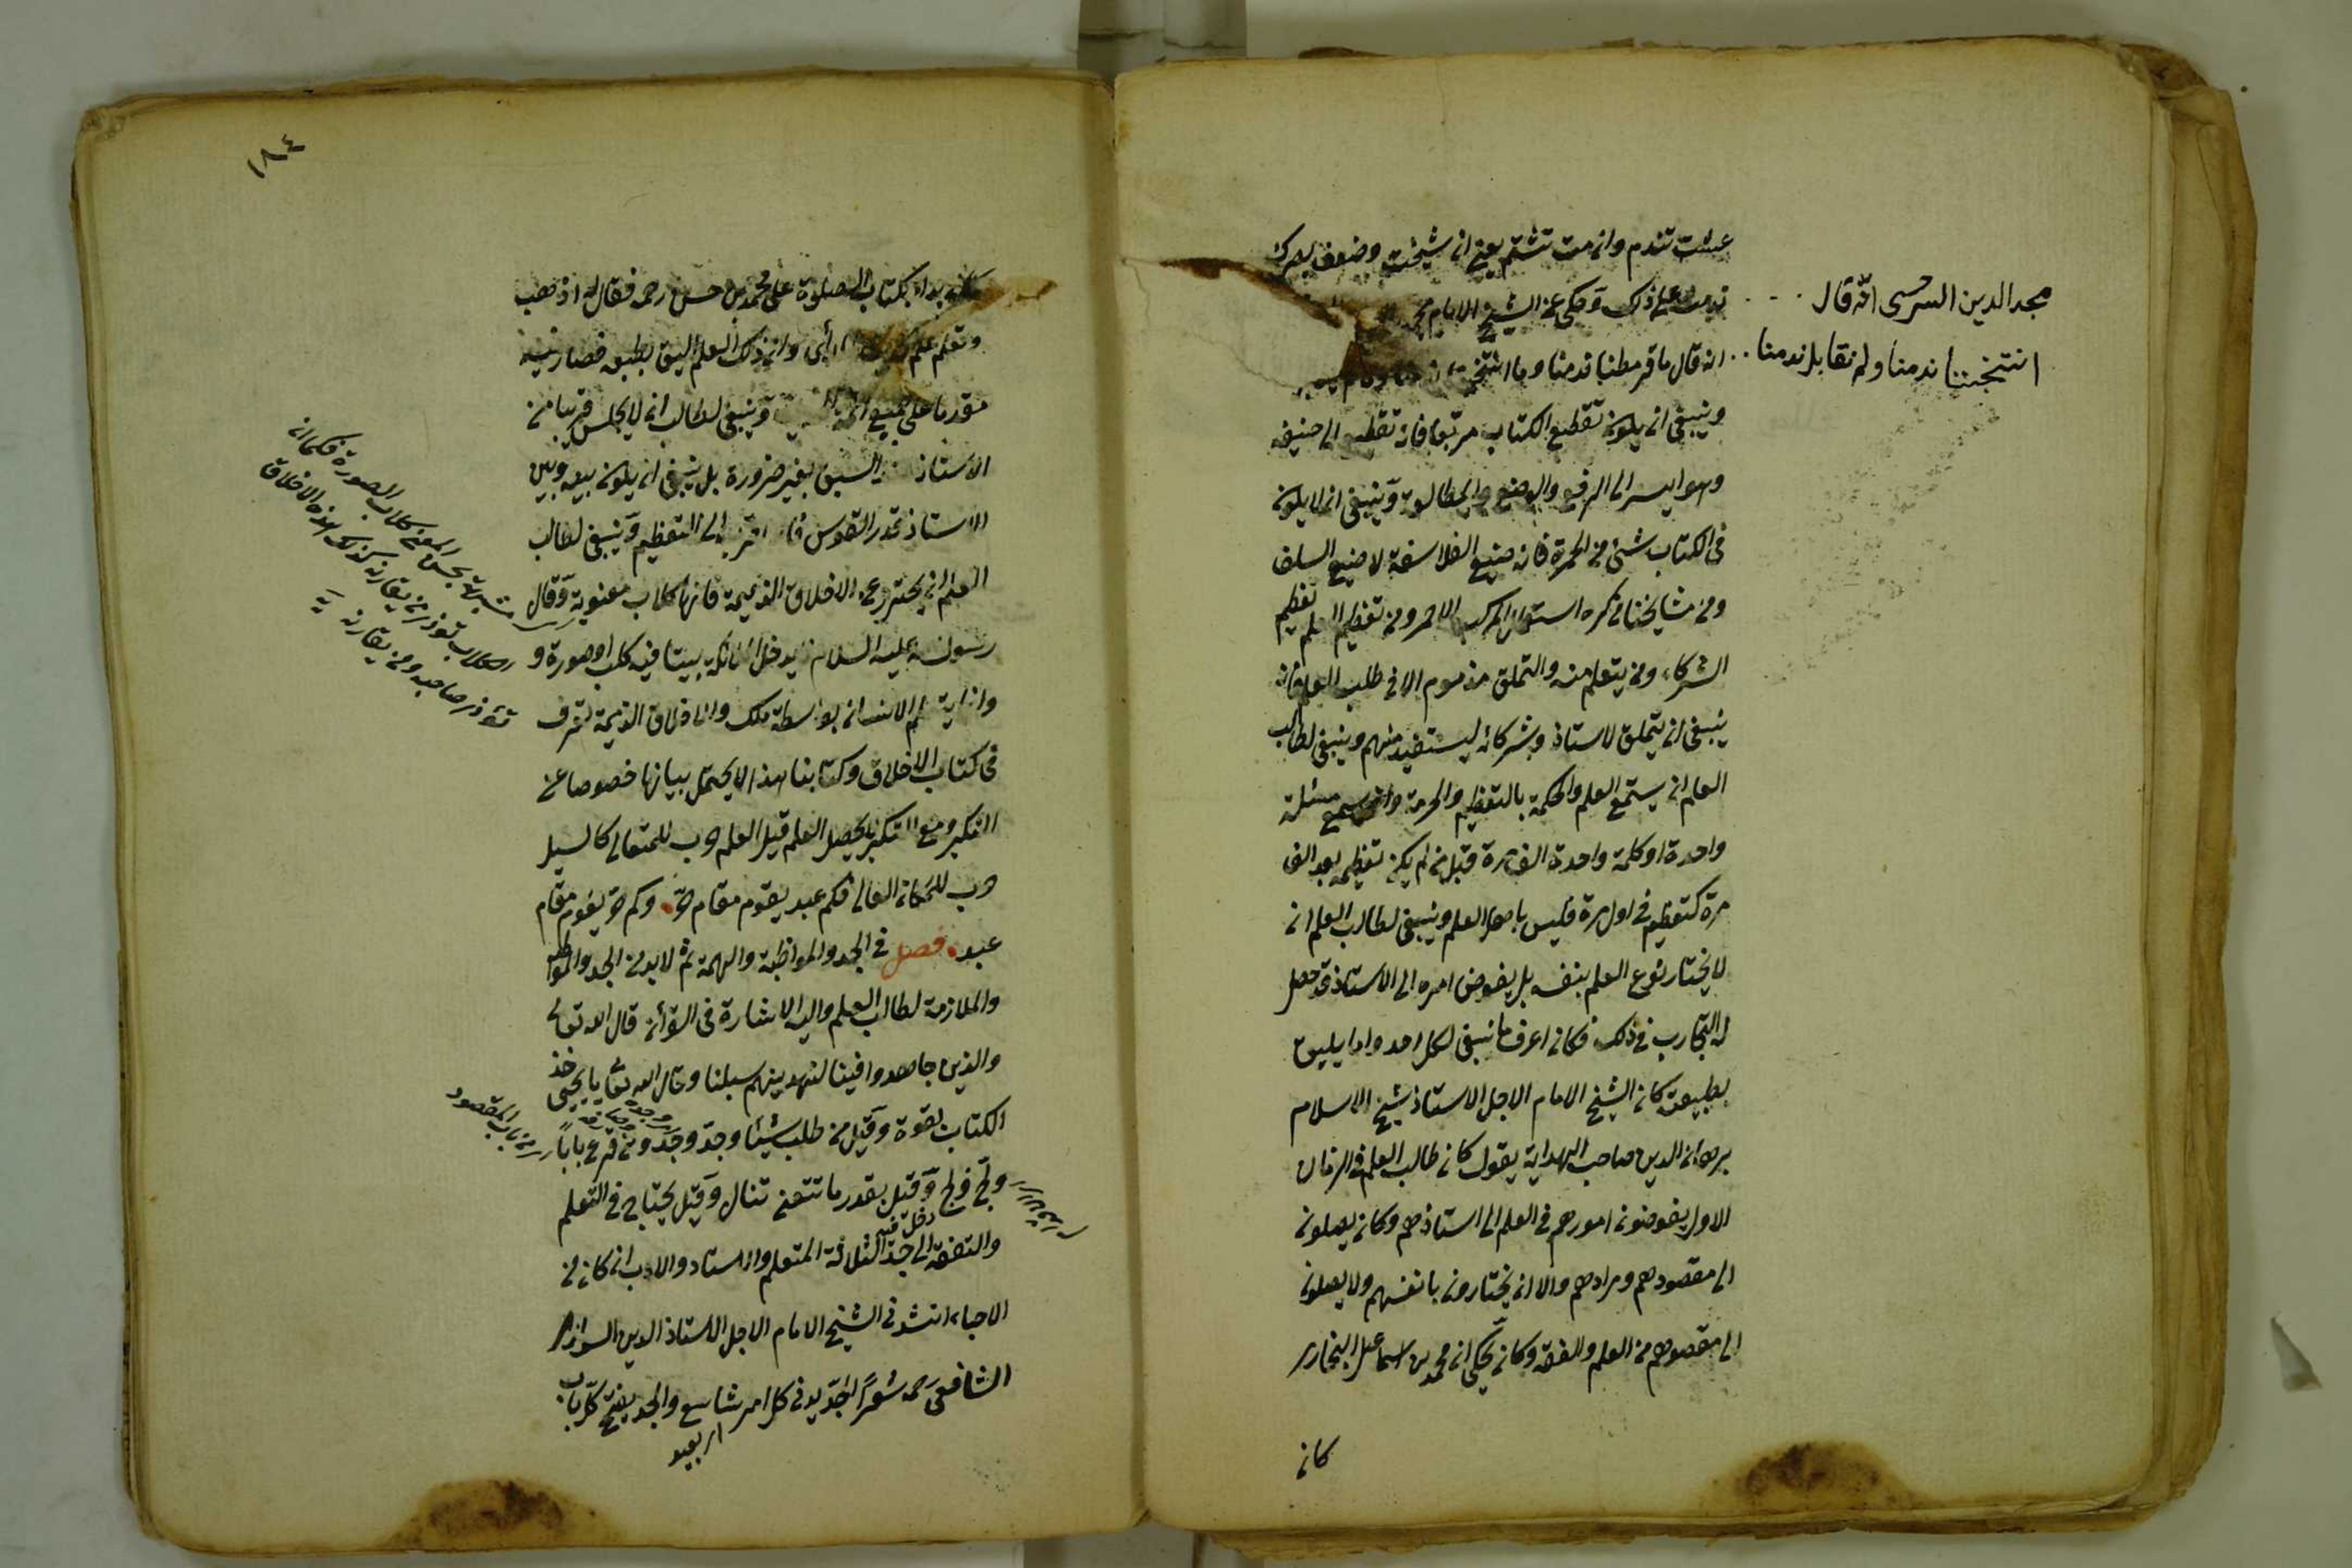 عشت تندم وان مت تشتم يعني ان شيخت وضعف بصرك
ندمت على ذلك وحكى عن الشيخ الامام مجد
مجد الدين السرحسى انه قال
انه قال ما قرمطنا ندمنا وما انتخبنا
انتخبنا ندمنا ولم نقابل ندمنا
وينبغى ان يكون تقطيع الكتاب مربعا فانه تقطيع ابى حنيفه
وهو ايسر الى الرفع والوضع والمطالعة وينبغى ان لا يكون
فى الكتاب شئ من الحمرة فانه صنيع الفلاسفة لا صنيع السلف
ومن مشايخنا من كره استعمال المركب الاحمر ومن تعظيم العلم تعظيم
الشركاء ومن يتعلم منه والتملق مذموم الا فى طلب العلم فانه
ينبغى ان يتملق لاستاذه وشركائه ليستفيد منهم وينبغى لطالب
العلم ان يستمع العلم والحكمة بالتعظيم والحرمة وان سمع مسئلة
واحدة او كلمة واحدة الف مرة قيل من لم يكن تعظيمه بعد الف
مرة كتعظيمه فى اول مرة فليس باهل العلم وينبغى لطالب العلم ان
لا يختار نوع العلم بنفسه بل يفوض امره الى الاستاذ قد حصل
له التجارب فى ذلك فكان اعرف ما ينبغى لكل احد وما يليق
بطبيعته كان الشيخ الامام الاجل الاستاذ شيخ الاسلام
برهان الدين صاحب الهداية يقول كان طالب العلم فى الزمان
الاول يفوضون امورهم فى العلم الى استاذهم وكان يصلون
الى مقصودهم ومرادهم والان يختارون بانفسهم ولا يصلون
الى مقصودهم من العلم والفقه وكان يحكى ان محمد بن اسماعيل البخارى
كان
١٨٤
كان بداء بكتاب الصلوة على محمد بن حسن رحمه فقال له اذهب
وتعلم علم وان ذلك العلم اليق بطبعه فصار فيه
مقدما على جميع ائمة وينبغى لطالب ان لا يجلس قريبا من
الاستاذ السبق بغير ضرورة بل ينبغى ان يكون بينه وبين
الاستاذ قدر القوس فانه اقرب الى التعظيم وينبغى لطالب
العلم ان يحترز عن الاخلاق الذميمة فانها كلاب معنوية وقال
رسول الله عليه السلام لا يدخل الملائكة بيتا فيه كلب او صورة و
وانما يتعلم الانسان بواسطة ملك والاخلاق الذميمة تعرف
فى كتاب الاخلاق وكتابنا هذا لا يحتمل بيانها خصوصا عن
التكبر ومع التكبر لا يحصل العلم قيل العلم حرب للمتعالى كالسيل
حرب للمكان العالى فكم عبد يقوم مقام حر وكم حر يقوم مقام
عبد فصل فى الجد والمواظبة والهمة ثم لا بد من الجد والمواظبة
والملازمة لطالب العلم واليه الاشارة فى القرأن قال الله تعالى
والذين جاهدوا فينا لنهدينهم سبلنا وقال الله تعالى يا يحيى خذ
الكتاب بقوة وقيل من طلب شيئا وجدّ وجد ومن قرع بابا
من باب المقصود
ولجّ ولج وقيل بقدر ما تتعنى تنال وقيل يحتاج فى التعلم
دخل فيه
والتفقه الى جدّ الثلاثة المتعلم والاستاد والاب ان كان من
الاحياء انشدنى الشيخ الامام الاجل الاستاذ الدين السرازى
الشافعى رحمه شعرا الجد يدنى كل امر شاسع والجد يفتح كل باب